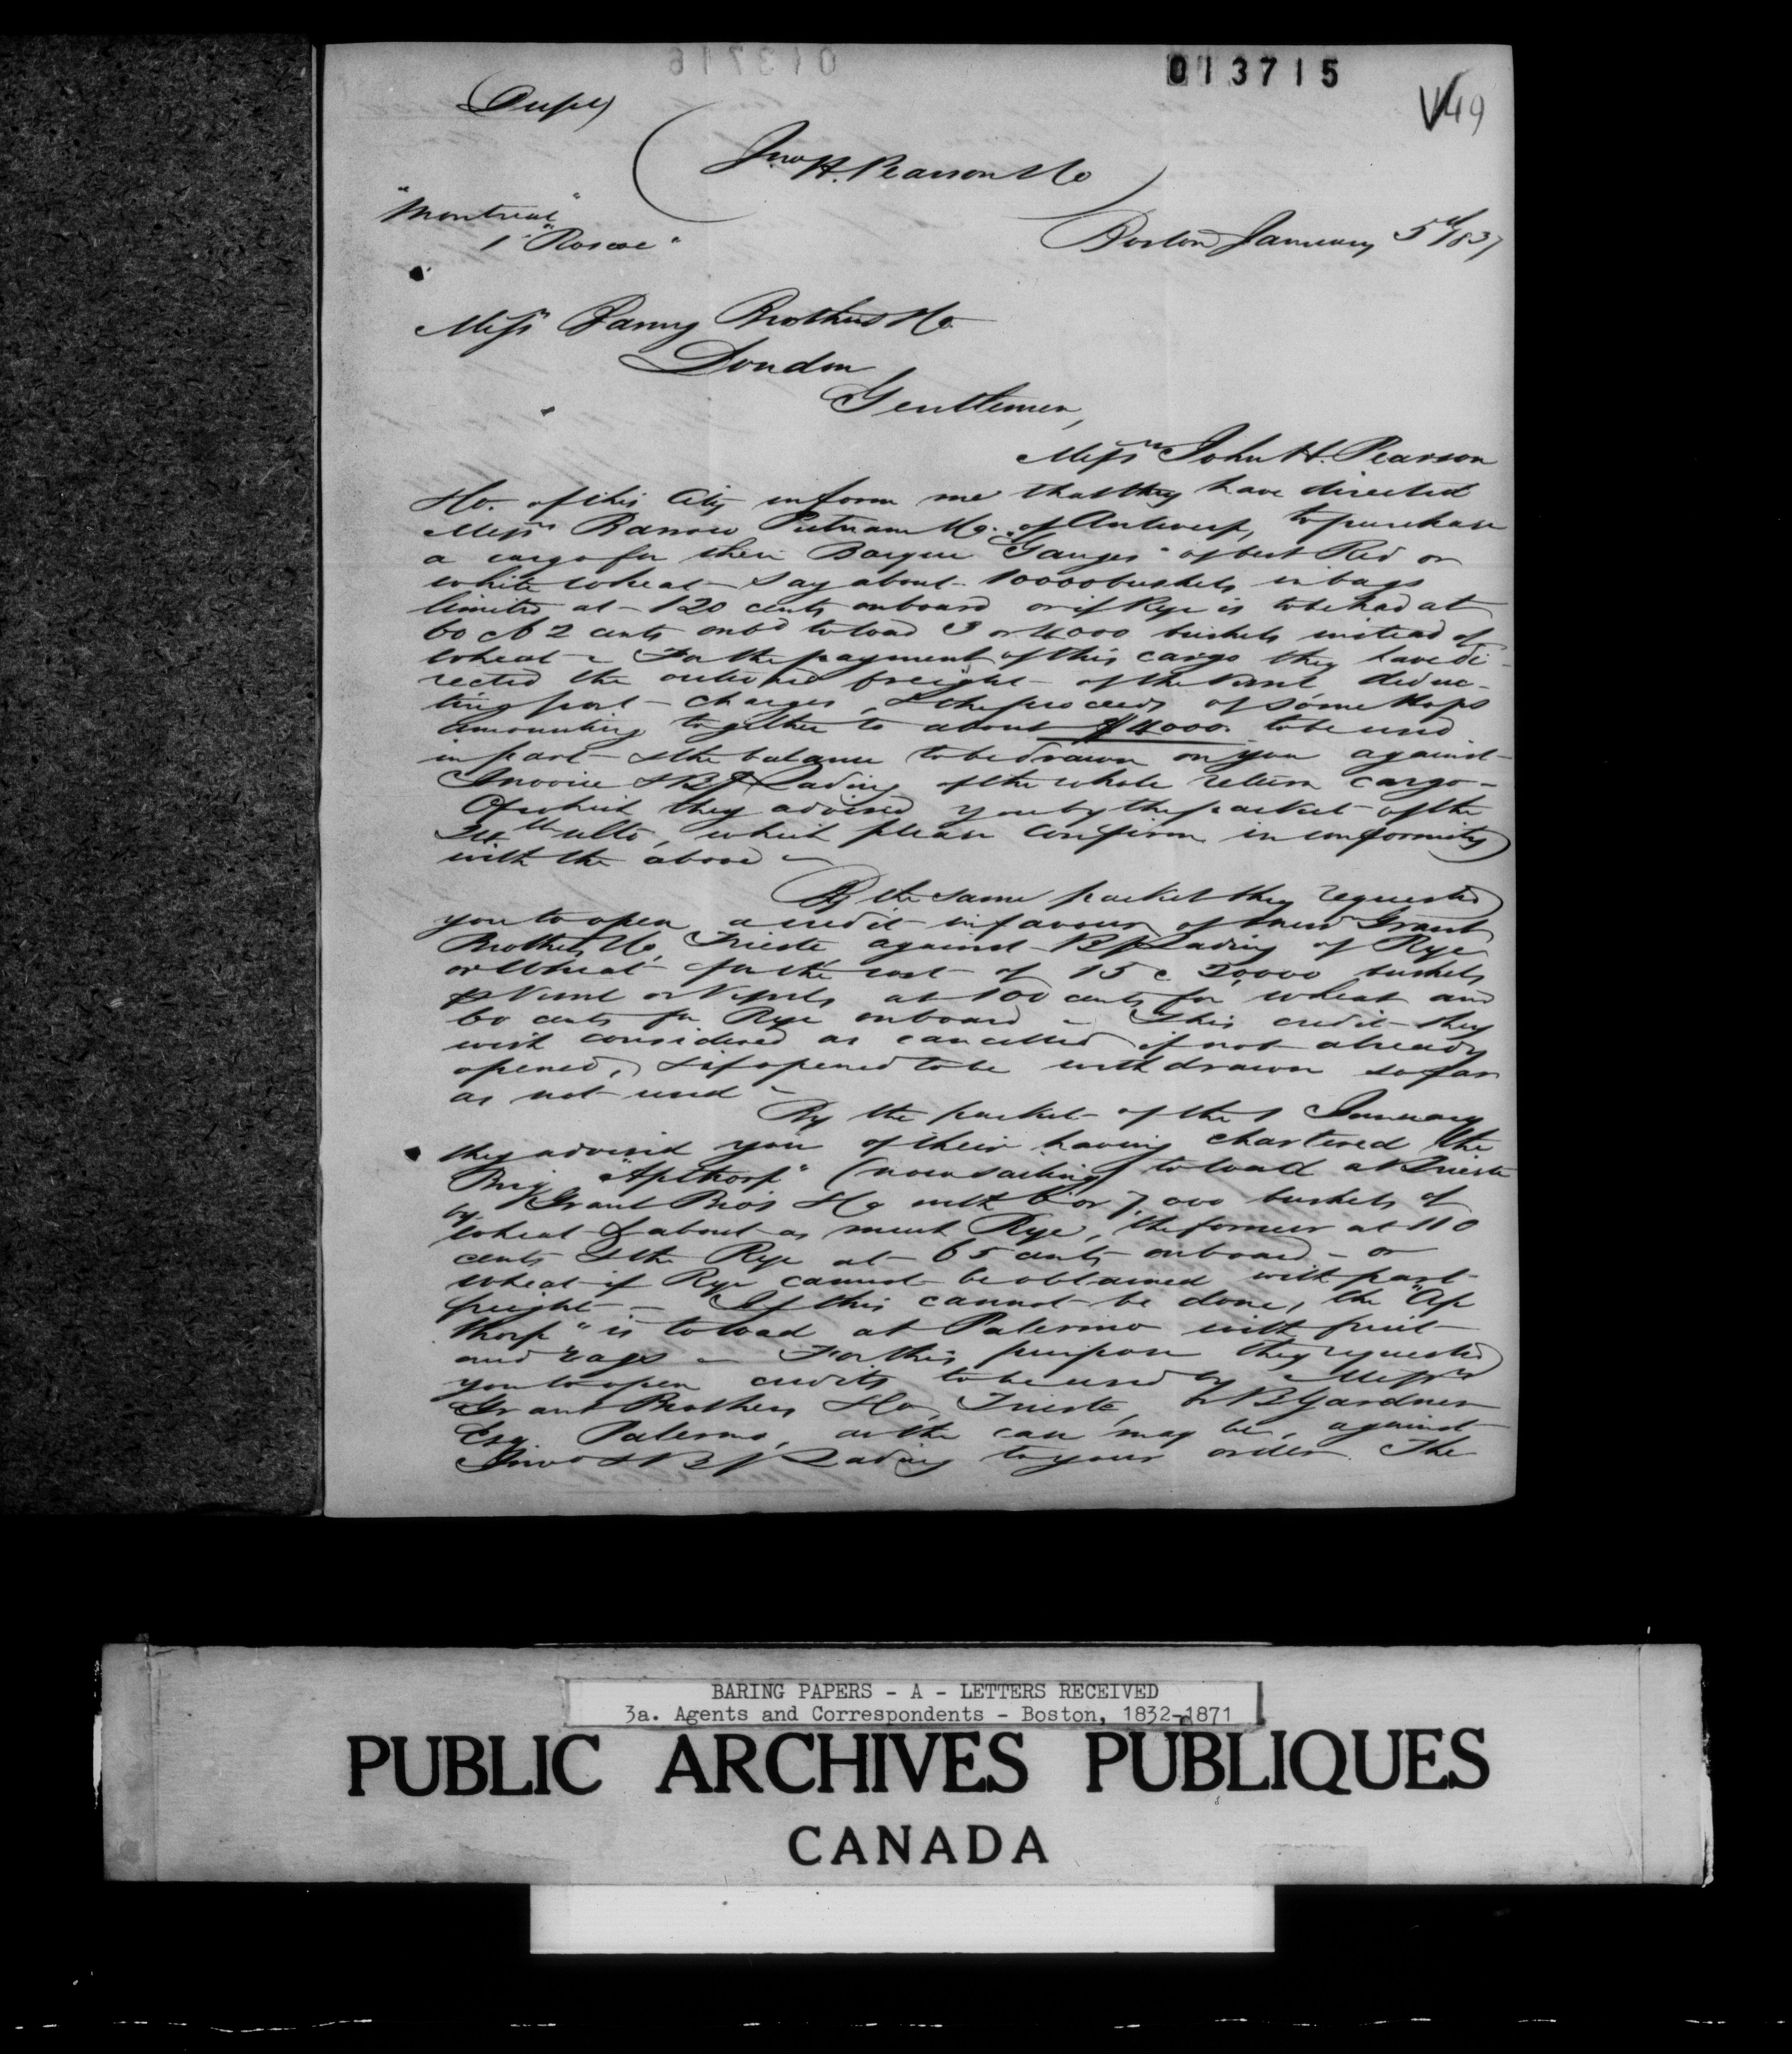 013716
013715
V49
(Dupl)
Jno H. Pearson & Co
"Montreal"
1 "Roscoe"
Boston January 5th 1837
Messrs Baring Brothers & Co
London
Gentlemen,
Messrs John H. Pearson
& Co. of this City inform me that they have directed
Messrs Barrow Putnam & Co. of Antwerp, to purchase
a cargo for their Barque "Ganges" of best Red or
white wheat - say about 10000 bushels in bags
limited at 120 cents onboard or if Rye is to be had at
60 c 62 cents onbd to load 3 or 4000 bushels instead of
wheat - For the payment of this cargo they have di-
rected the outward freight of the Vessel deduc-
ting port charges, & the proceeds of some Hops
amounting together to about $4000. to be used
in part & the balance to be drawn on you against
Invoice & B/ Lading of the whole return cargo -
Of which they advised you by the packet of the
24th ulto, which please confirm in conformity
with the above -
By the same packet they requested
you to open a credit in favour of Messrs Grant
Brothers & Co, Trieste against B/ Lading of Rye
or Wheat for the cost of 15 c 20,000 bushels
p Vessel or Vessels at 100 cents for wheat and
60 cents for Rye onboard - This credit they
wish considered as cancelled if not already
opened, & if opened to be withdrawn so far
as not used -
By the packet of the 1 January
they advised you of their having chartered the
Brig "Apthorp" (now sailing) to load at Trieste
by Grant Bros & Co with 6 or 7,000 bushels of
wheat & about as much Rye, the former at 110
cents & the Rye at 65 cents onboard - or
wheat if Rye cannot be obtained with part
freight - If this cannot be done, the "Ap
thorp" is to load at Palermo with fruit
and rags - For this purpose they requested
you to open credits to be used by Messrs
Grant Brothers & Co, Trieste, & B Gardner
Esq Palermo, as the case may be, against
Invo & B/ Lading to your order. The
BARING PAPERS - A - LETTERS RECEIVED
3a. Agents and Correspondents - Boston, 1832-1871
PUBLIC ARCHIVES PUBLIQUES
CANADA